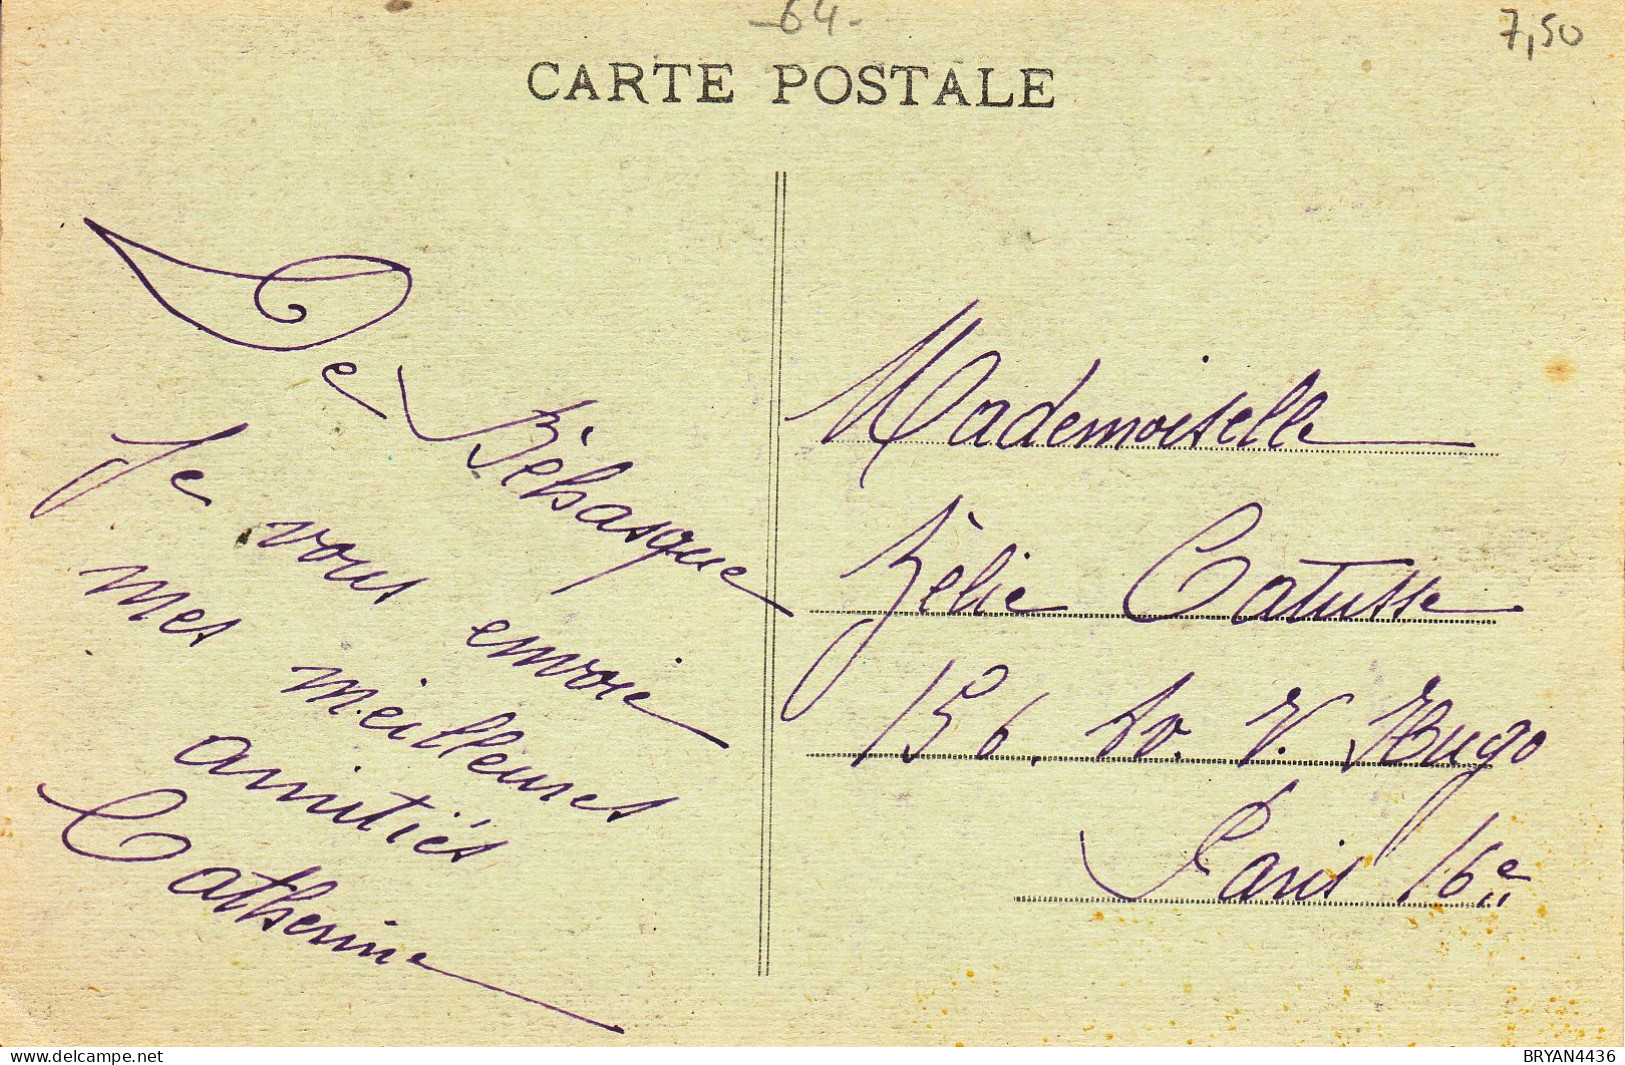 -64-
7,50
CARTE POSTALE
De Bébasque
Je vous envoie
mes meilleures
amitiés
Catherine
Mademoiselle
Zélie Catusse
156. Av. V. Hugo
Paris 16e
https://www.delcampe.net
BRYAN4436